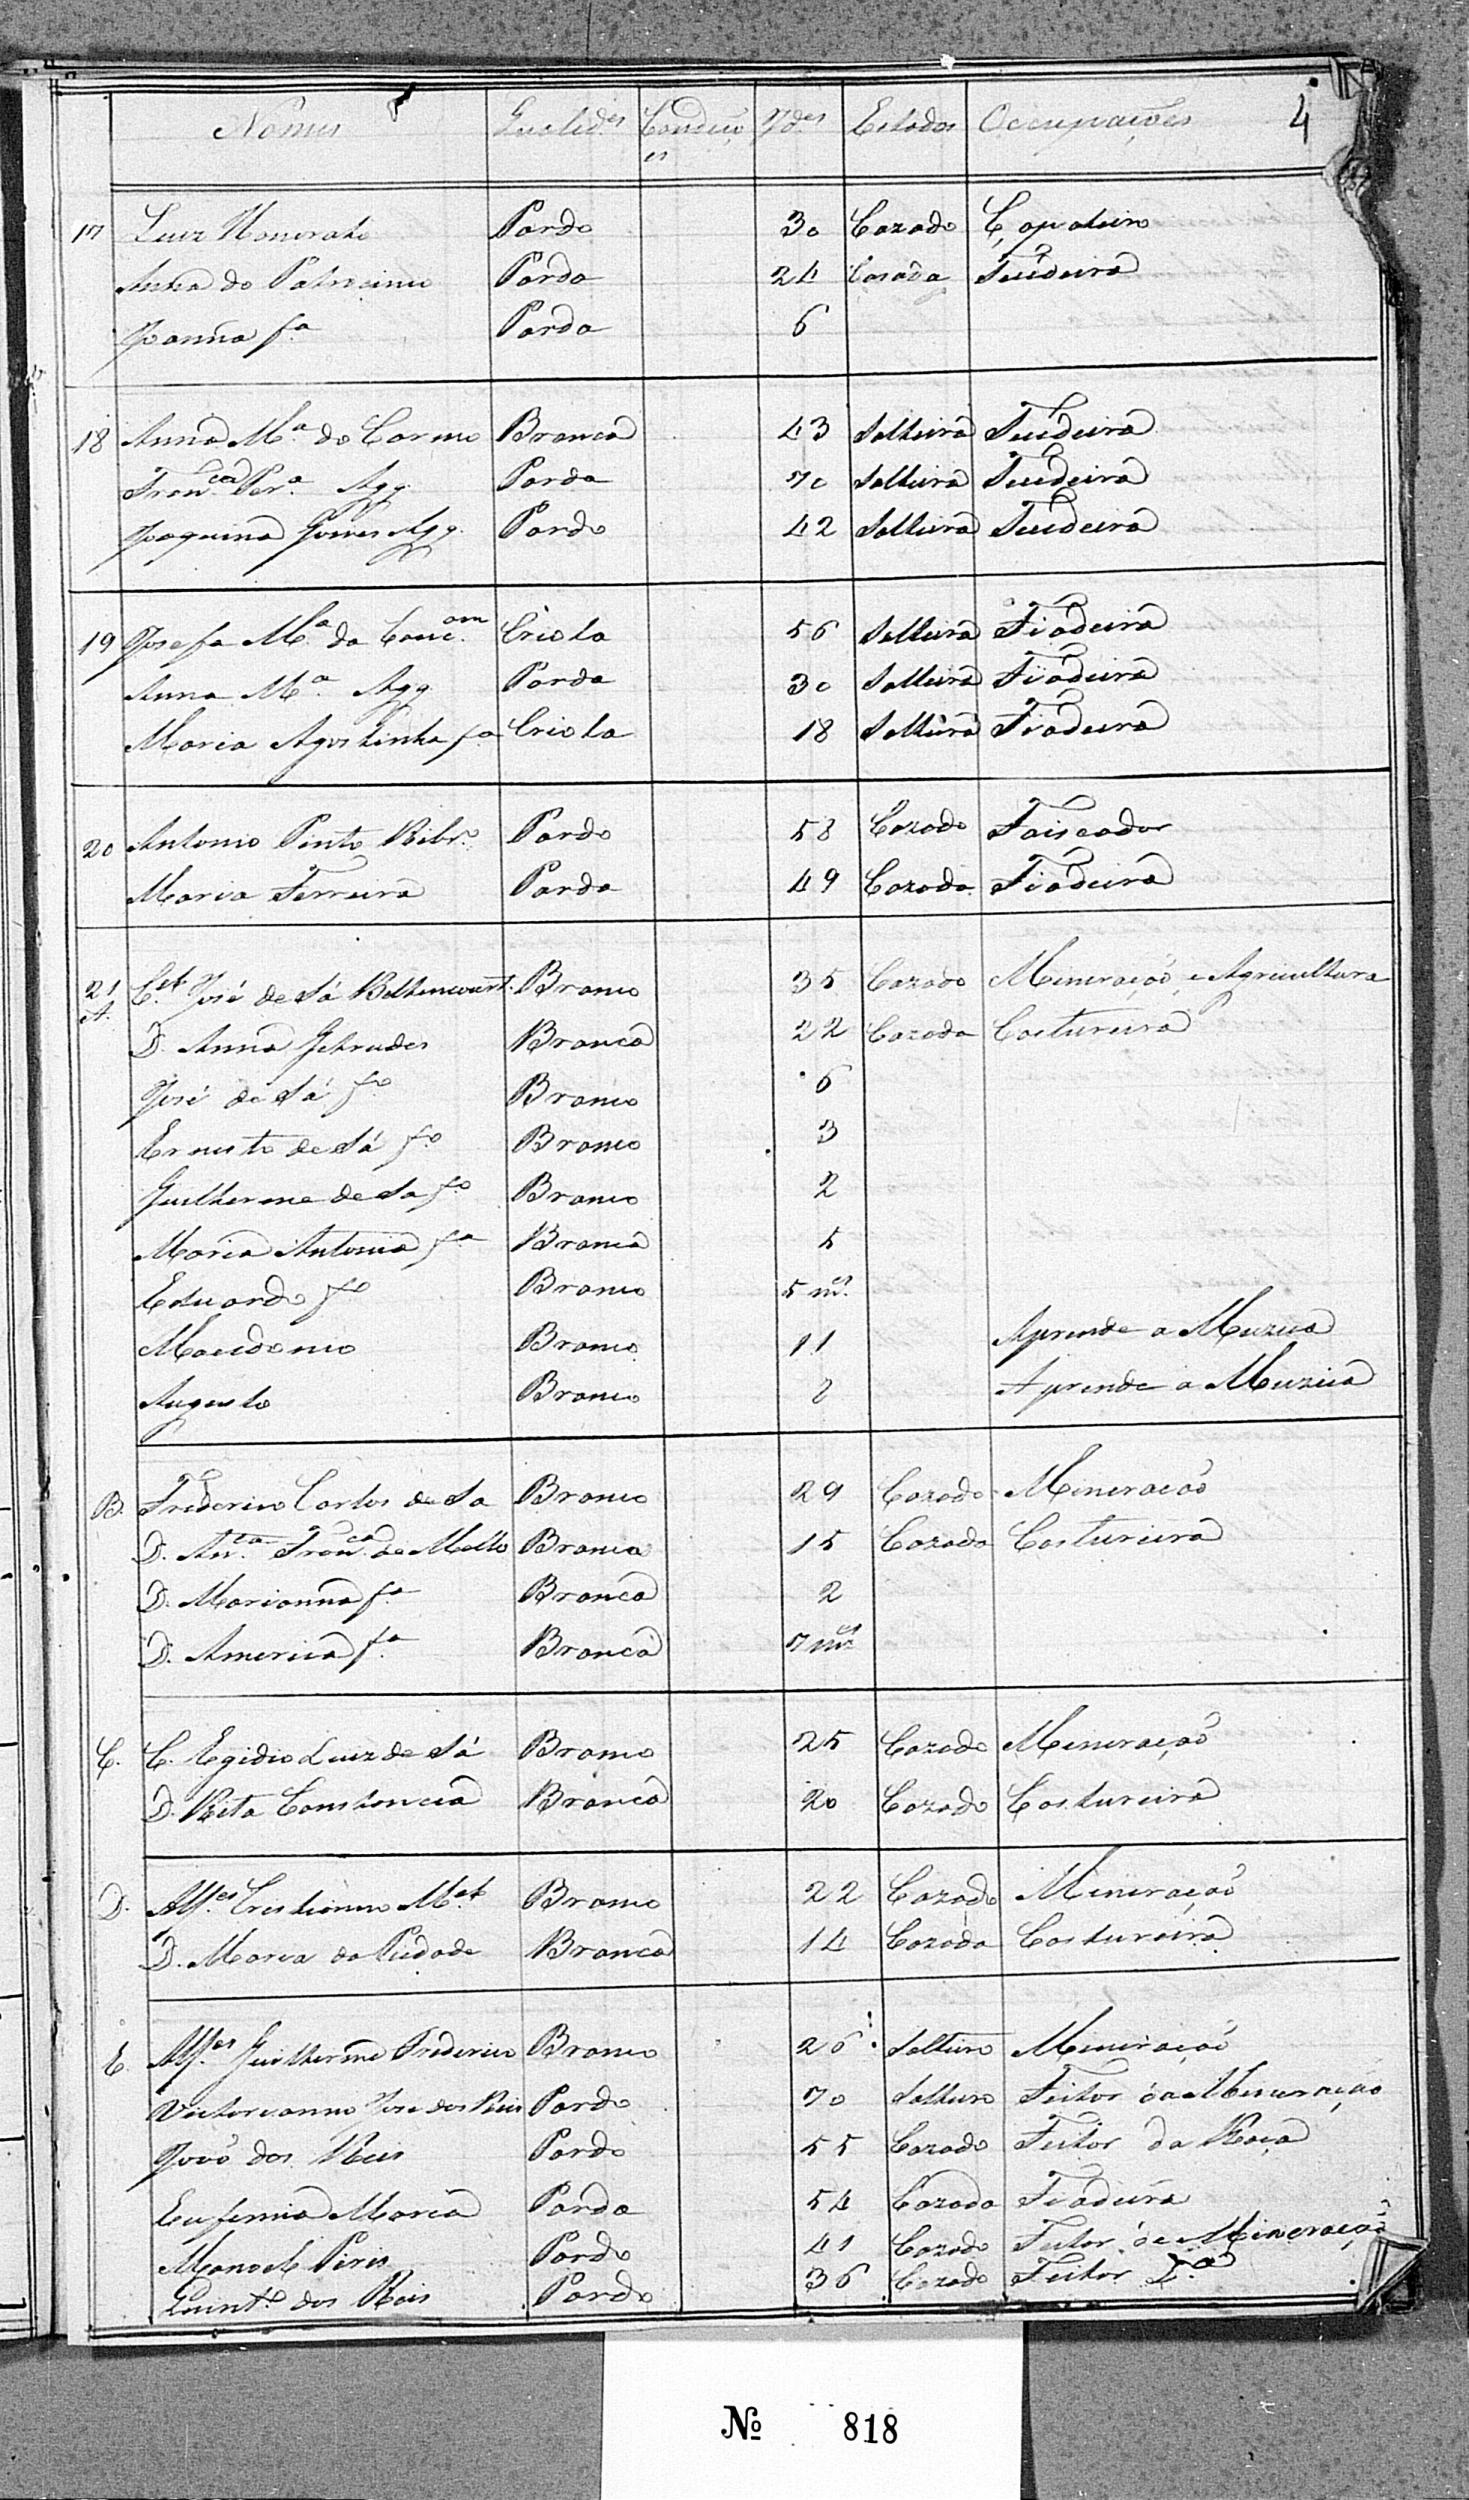 Nomes Qualid.es Condiçõ Id.es Estados Occupaições 4
es
17 Luiz Honorato Pardo 30 Cazado Çapateiro
Anna do Patrocinio Parda 24 Casada Teideira
Joanna f.a Parda 6
18 Anna M.a do Carmo Branca 43 Solteira Teideira
Fran.ca Per.a Agg. Parda 70 Solteira Teideira
Joaquina Gomes Agg. Parda 42 Solteira Teideira
19 Josefa M.a da Conc.am Criola 56 Solteira Fiadeira
Anna M.a Agg. Parda 30 Solteira Fiadeira
Maria Agostinha f.a Criola 18 Solteira Fiadeira
20 Antonio Pinto Ribr.o Pardo 58 Cazado Faiscador
Maria Ferreira Parda 49 Cazada Fiadeira
21 C.el José de Sá Bettencourt. Branco 35 Cazado Mineração, e Agricultura
A. D. Anna Getrudes Branca 22 Cazada Costureira
José de Sá f.o Branco 6
Ernesto de Sá f.o Branco 3
Guilherme de Sa f.o Branco 2
Maria Antonia f.a Branca 5
Eduardo f.o Branco 5 m.es
Macedonio Branco 11 Aprende a Muzica
Augusto Branco 8 Aprende a Muzica
B. Frederico Carlos de Sa Branco 29 Cazado Mineração
D. An.ta Fran.ca de Mello Branca 15 Cazada Costureira
D. Marianna f.a Branca 2
D. America f.a Branca 7 m.es
C. C. Egidio Luiz de Sá Branco 25 Cazado Mineração
D. Rita Constancia Branca 20 Cazada Costureira
D. Alf.es Cristianno M.el Branco 22 Cazado Mineração
D. Maria da Piedade Branca 14 Cazada Costureira
E. Alf.es Guilherme Frederico Branco 26 Solteiro Mineração
Victorianno Jose dos Reis Pardo 70 Solteiro Feitor da Mineração
João dos Reis Pardo 55 Cazado Feitor da Roça
Eufemia Maria Parda 54 Cazada Fiadeira
Manoel Pires Pardo 41 Cazado Feitor de Mineração
Quint.o dos Reis Pardo 36 Cazado Feitor D.a
No 818